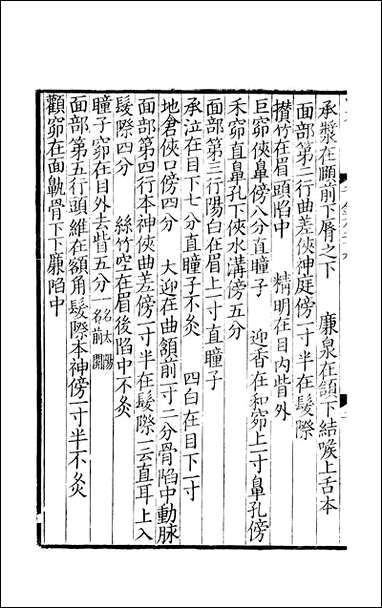 承漿在頤前下脣之下　廉泉在頷下結喉上舌本
面部第二行曲差俠神庭傍一寸半在髮際
攅竹在眉頭陷中　精明在目內眥外
巨窌俠鼻傍八分直瞳子　迎香在和窌上一寸鼻孔傍
禾窌直鼻孔下俠水溝傍五分
面部第三行陽白在眉上一寸直瞳子
承泣在目下七分直瞳子不灸　四白在目下一寸
地倉俠口傍四分　大迎在曲頷前一寸二分骨陷中動脉
面部第四行本神俠曲差傍一寸半在髮際一云直耳上入
髮際四分　絲竹空在眉後陷中不灸
瞳子窌在目外去眥五分一名太陽一名前關
面部第五行頭維在額角髮際本神傍一寸半不灸
顴窌在面鼽骨下下廉陷中